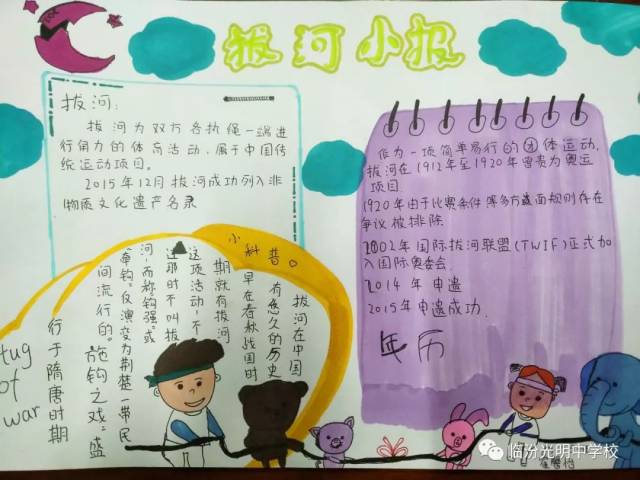 拔河小报
拔河:
拔河为双方各执绳一端进
行角力的体育活动,属于中国传
统运动项目。
2015年12月拔河成功列入非
物质文化遗产名录
作为一项简单易行的团体运动,
拔河在1912年至1920年曾贵为奥运
项目.
1920年由于比赛条件等多方面规则存在
争议被排除
2002年国际拔河联盟(TWIF)正式加
入国际奥委会.
2014年申遗
2015年申遗成功.
年历
小科普。
拔河在中国
有悠久的历史
早在春秋战国时
期就有拔河
这项活动,不
过那时不叫拔
河,而称钩强"或
"牵钩",仅演变为荆楚一带民
间流行的"施钩之戏"盛
行于隋唐时期
tug
of
war
临汾光明中学校